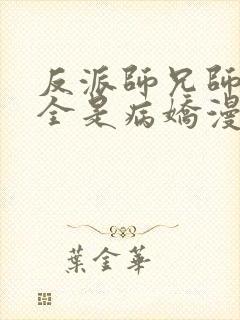 反派師兄師
全是病嬌漫
葉金華